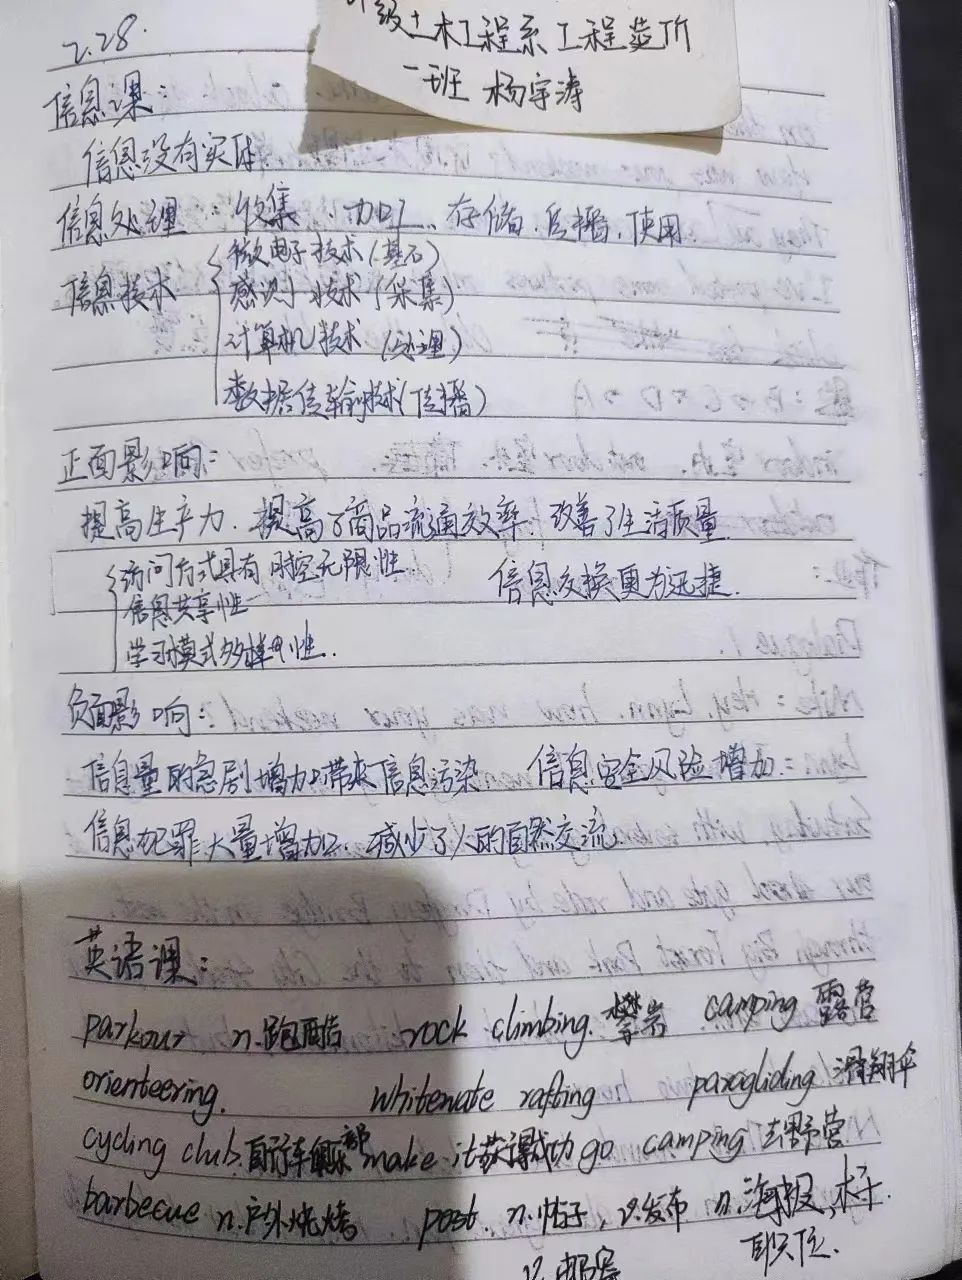 级土木工程系工程造价
一班 杨宇涛
2.28.
信息课:
信息没有实体.
信息处理:收集、加工、存储、传播、使用
微电子技术(基石)
信息技术 感测技术(采集)
计算机技术(处理)
数据传输技术(传播)
正面影响:
提高生产力. 提高了商品流通效率. 改善了生活质量.
访问方式具有时空无限性. 信息交换更为迅捷.
信息共享性
学习模式多样性.
负面影响:
信息量的急剧增加,带来信息污染. 信息安全风险增加.
信息犯罪大量增加. 减少了人的自然交流.
英语课:
parkour n.跑酷 rock climbing.攀岩 camping 露营
orienteering. whitewate rafting paragliding 滑翔伞
cycling club.自行车俱乐部 make it获得成功 go camping 去野营
barbecue n.户外烧烤 post. n.帖子, v.发布 n.海报,
v.邮寄 职位.